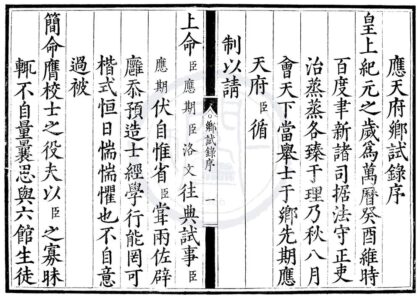 應天府鄉試錄序
皇上紀元之歲爲萬曆癸酉維時
百度聿新諸司据法守正吏
治蒸蒸各臻于理乃秋八月
會天下當舉士于鄉先期應
天府臣循
制以請
鄉試錄序
一
上命臣應期臣洛文往典試事臣
應期伏自惟省臣甞兩佐辟
廱忝預造士經學行能罔可
楷式恒日惴惴懼也不自意
過被
簡命膺校士之役夫以臣之寡昧
輒不自量曩思與六館生徒